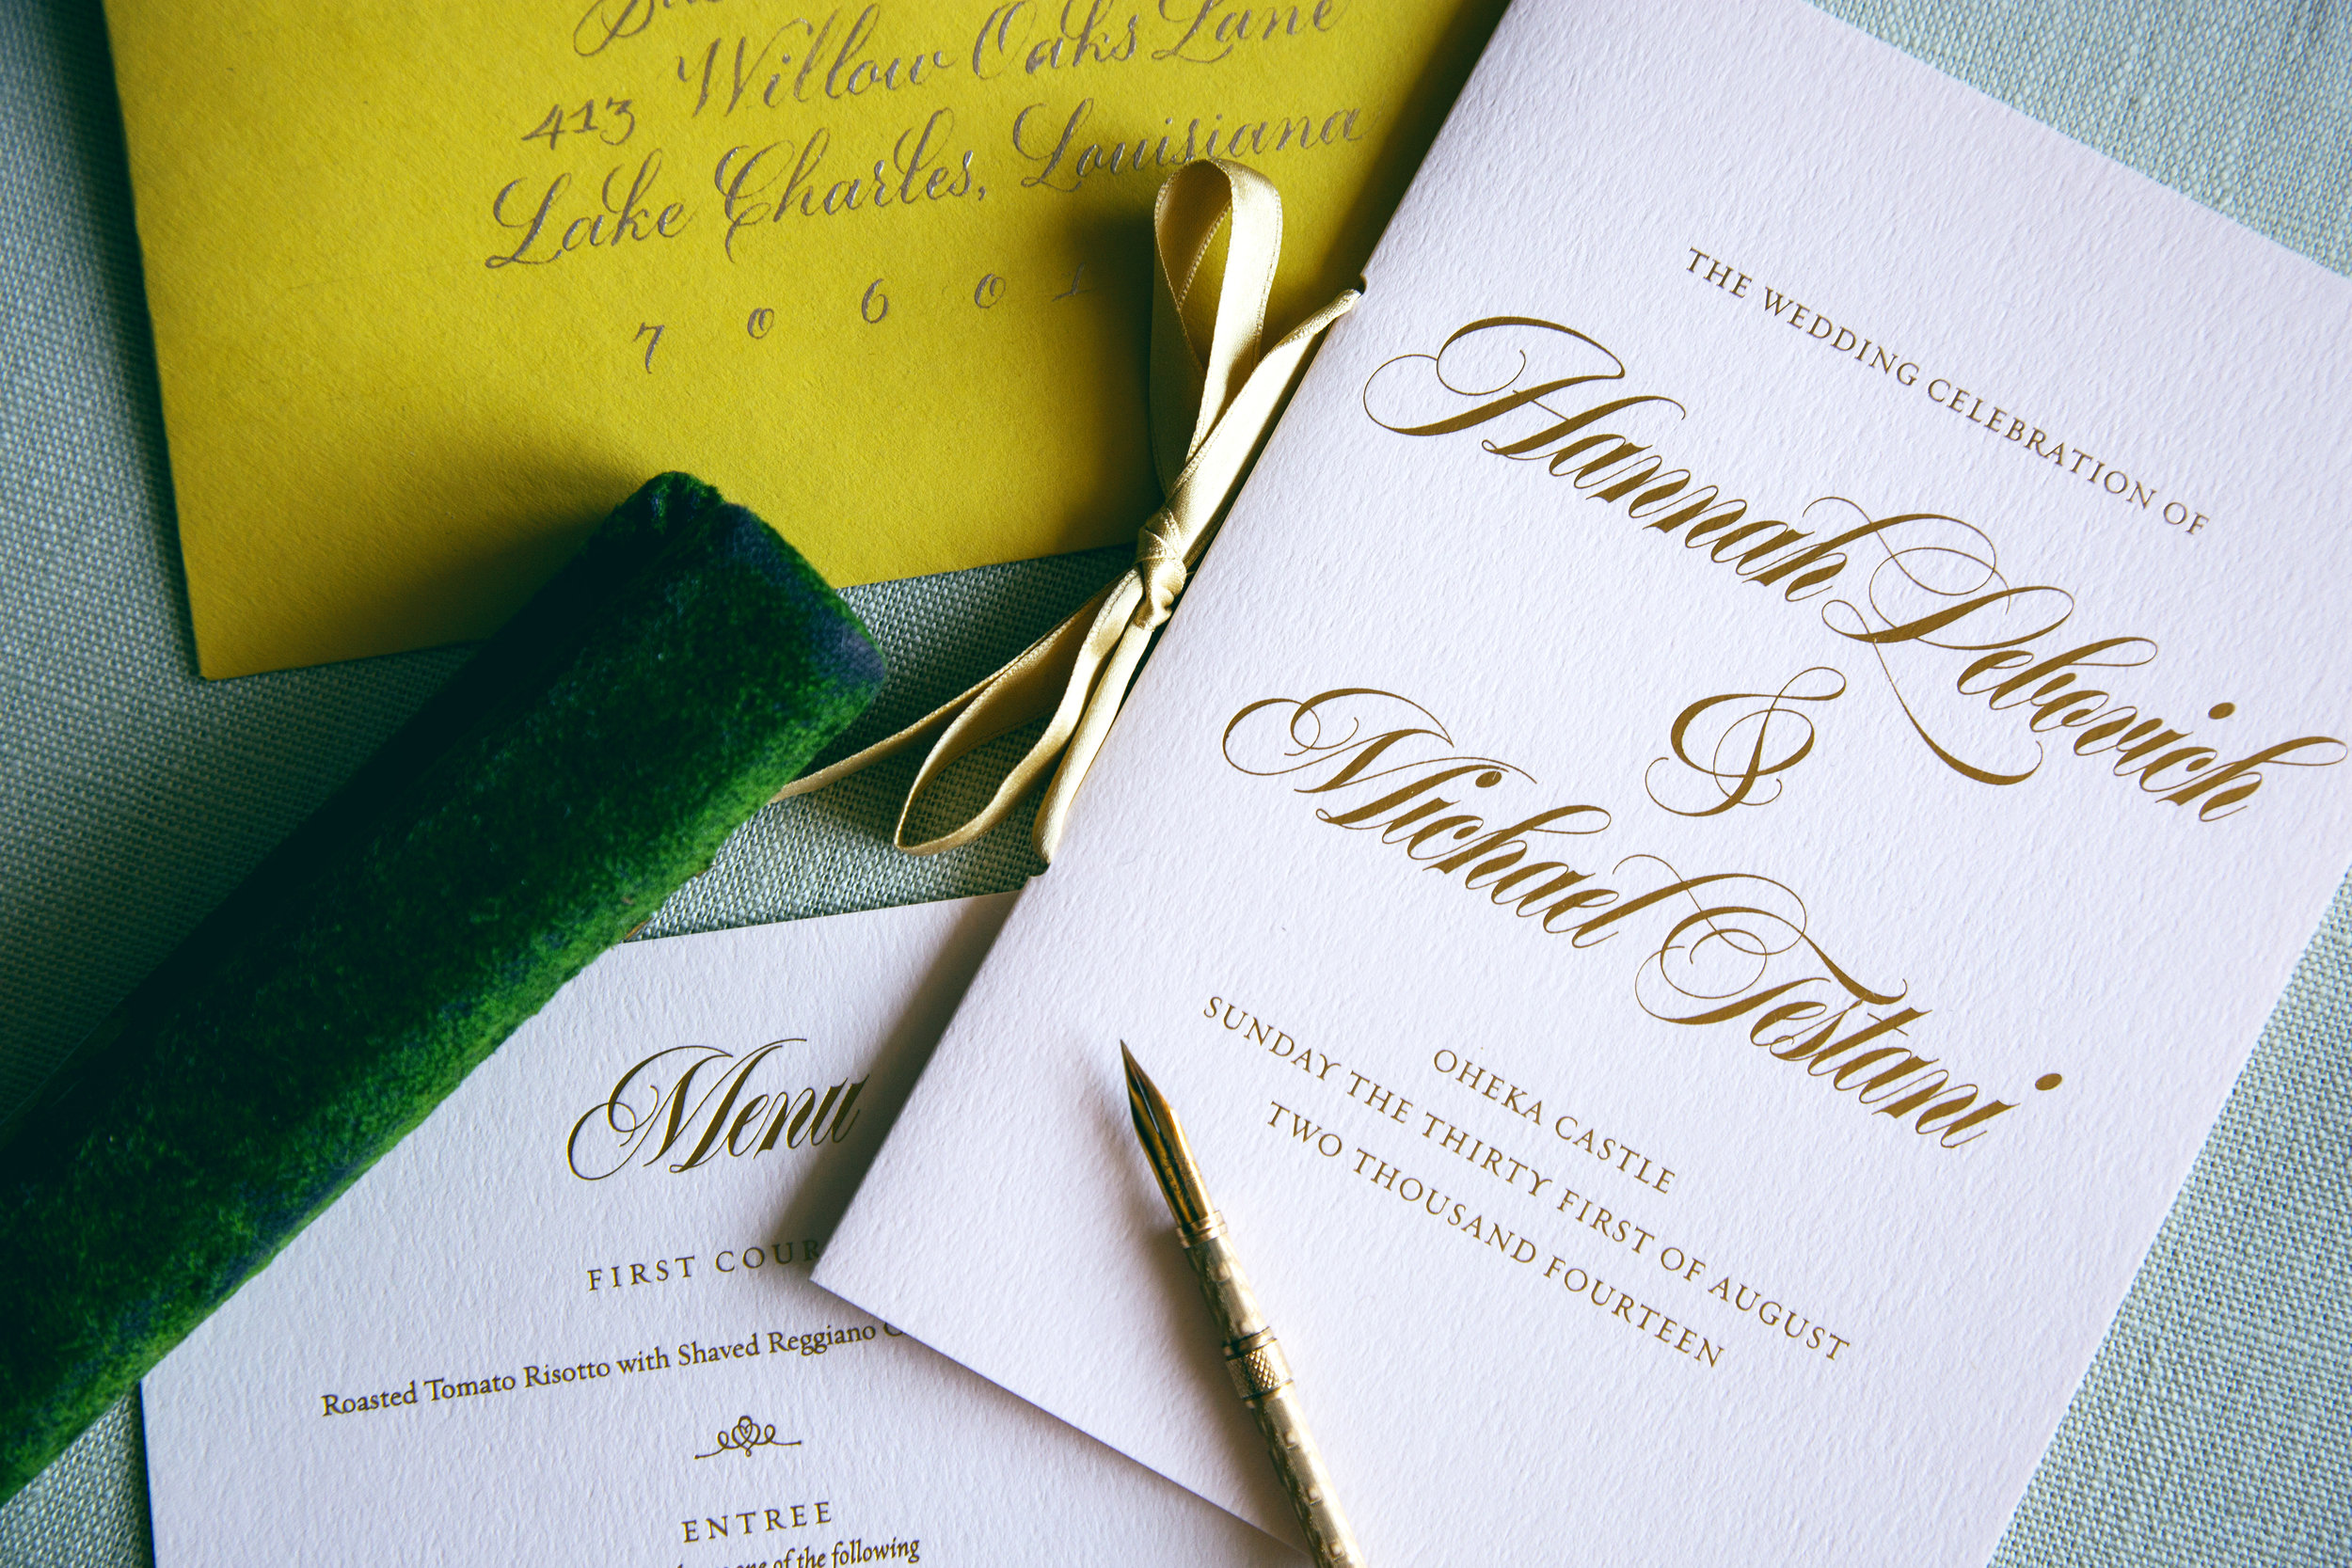 Willow Oaks Lane
413
Lake Charles, Louisiana
7 0 6 0 1
THE WEDDING CELEBRATION OF
Hannah Lebovich
&
Michael Testani
OHEKA CASTLE
SUNDAY THE THIRTY FIRST OF AUGUST
TWO THOUSAND FOURTEEN
Menu
FIRST COUR
Roasted Tomato Risotto with Shaved Reggiano
ENTREE
one of the following